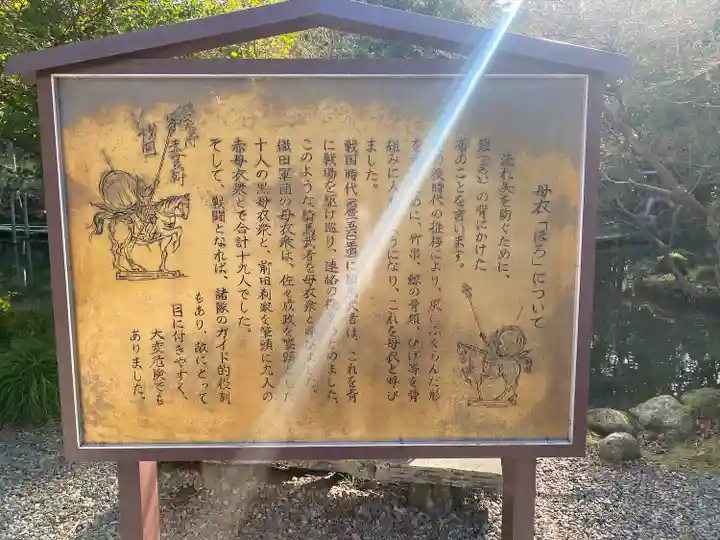 母衣「ほろ」について
流れ矢を防ぐために、
鎧(よろい)の背にかけた
布のことを言います。
の後時代の推移により、風でふくらんだ形
を ために、竹串、鯨の骨類、ひげ等を骨
組みに入 ようになり、これを母衣と呼び
ました。
戦国時代 に 者は、これを背
に戦場を駆け巡り、連絡の をつとめました。
このような騎馬武者を母衣衆と呼びました。
織田軍団の母衣衆は、佐々成政を筆頭とした
十人の黒母衣衆と、前田利家を筆頭に九人の
赤母衣衆とで合計十九人でした。
そして、戦闘となれば、諸隊のガイド的役割
もあり、敵にとって
目に付きやすく、
大変危険でも
ありました。